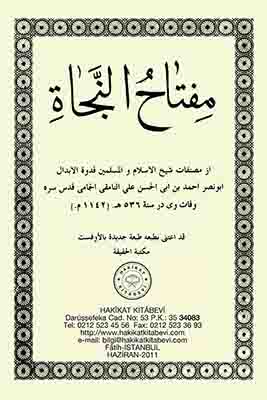 مِفتاحُ النَّجاةِ
از مصنفات شيخ الاسلام و المسلمين قدوة الابدال
ابونصر احمد بن ابى الحسن على النامقى الجامى قدس سره
وفات وى در سنة ٥٣٦ هـ. [١١٤٢ م.]
قد اعتنى بطبعه طبعة جديدة بالأوفست
مكتبة الحقيقة
HAKİKAT KİTÂBEVİ
Darüşşefeka Cad. No: 53 P.K.: 35 34083
Tel: 0212 523 45 56 Fax: 0212 523 36 93
http://www.hakikatkitabevi.com
e-mail: bilgi@hakikatkitabevi.com
Fâtih-İSTANBUL
HAZİRAN-2011